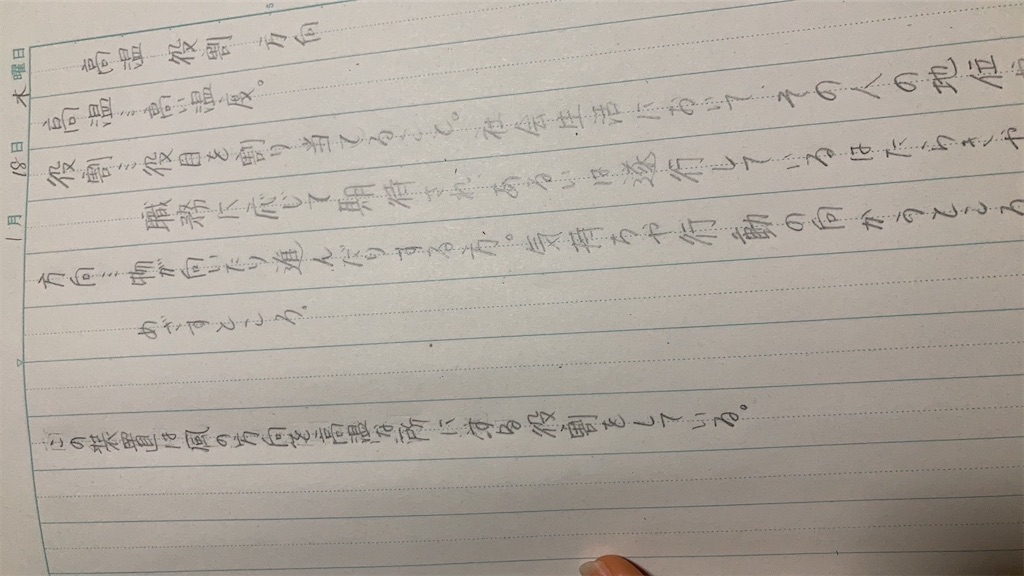 1月18日水曜日
高温 役割 方向
高温…高い温度。
役割…役目を割り当てること。社会生活において その人の地位や
職務に応じて期待され あるいは遂行しているはたらきや
方向…物が向いたり進んだりする方。気持ちや行動の向かうところ
めざすところ。
この装置は風の方向を高温な所に役割をしている。